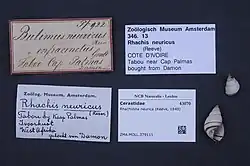 Bulimus neuricus
Zoölogisch Museum Amsterdam
346. 13
Rhachis neuricus
(Reeve)
COTE D'IVOIRE
Tabou near Cap Palmas
bought from Damon
Zoölog. Museum, Amsterdam.
Rhachis neuricus
Tabou by Kaap Palmas
Ivoorkust
West Afrika
gekocht van Damon
NCB Naturalis - Leiden
Cerastidae
Rhachis neuricus (Reeve,
ZMA.MOLL.